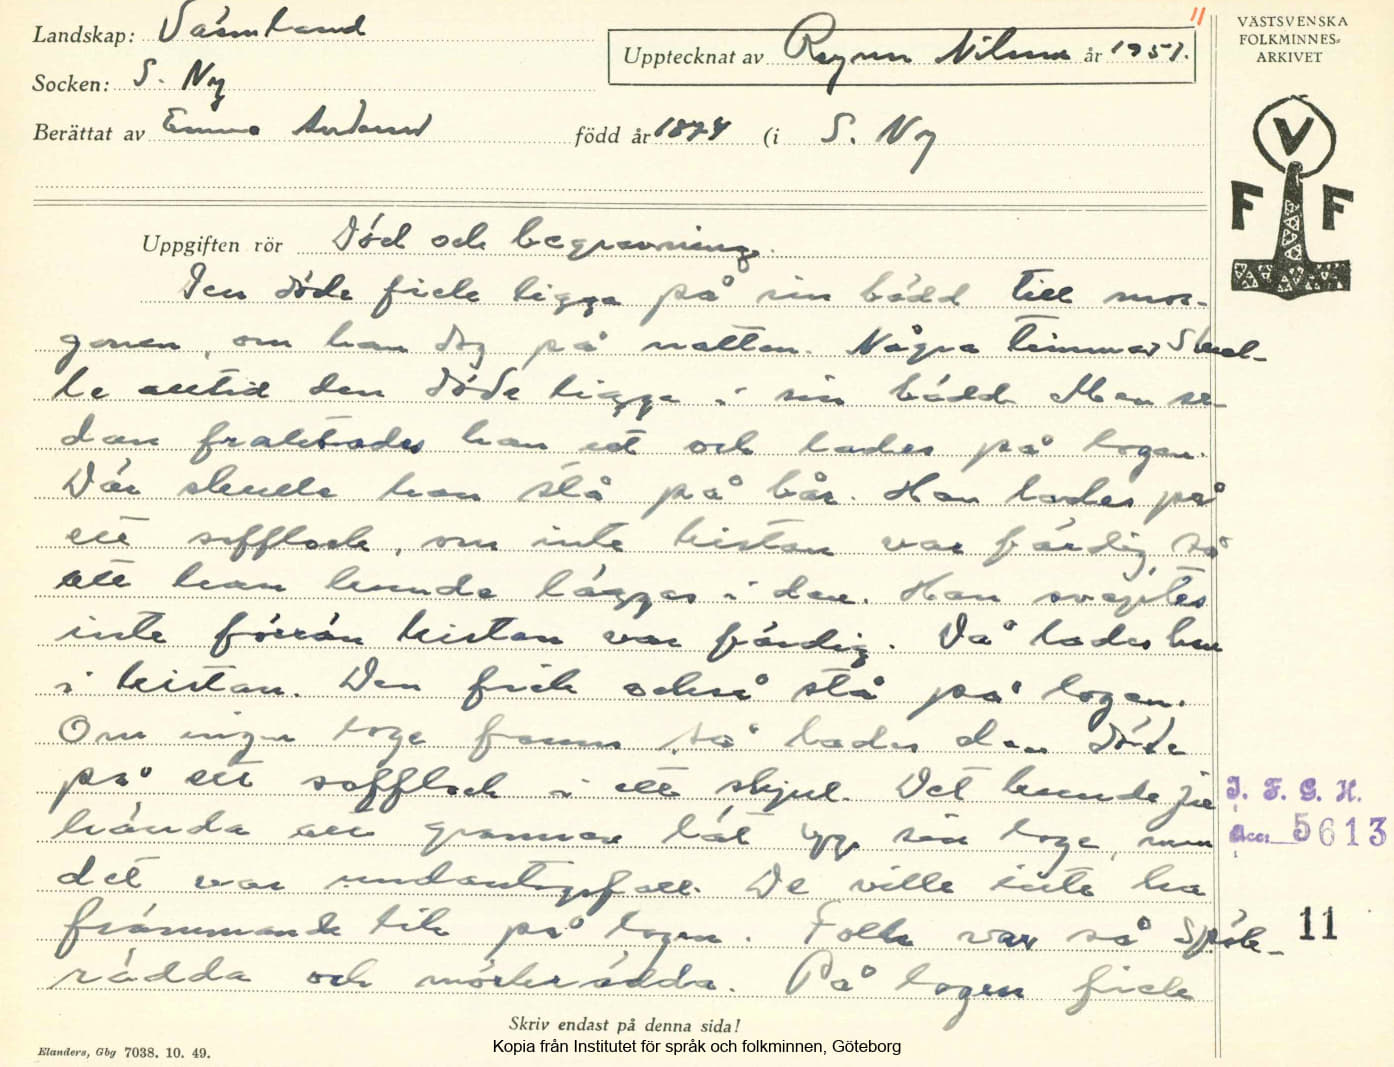 Landskap: Värmland
Socken: S. Ny
Upptecknat av Ragnar Nilsson år 1951.
Berättat av Emma                född år 1874 (i S. Ny
11
VÄSTSVENSKA
FOLKMINNES-
ARKIVET
V
F F
Uppgiften rör Död och begravning.
Den döde fick ligga på sin bädd till mor-
gonen, om han dog på natten. Några timmar skul-
le alltid den döde ligga i sin bädd. Men se-
dan fraktades han ut och lades på logen.
Där skulle han stå på bår. Han lades på
ett sofflock, om inte kistan var färdig, så
att han kunde läggas i den. Han sveptes
inte förrän kistan var färdig. Då lades han
i kistan. Den fick också stå på logen.
Om ingen loge fanns, så lades den döde
på ett sofflock i ett skjul. Det kunde ju
hända att grannar lät   sin loge, men
det var undantagsfall. De ville inte ha
främmande lik på logen. Folk var så spök-
rädda och mörkrädda. På logen fick
I. F. G. H.
Acc. 5613
11
Skriv endast på denna sida!
Elanders, Gbg 7038. 10. 49.
Kopia från Institutet för språk och folkminnen, Göteborg